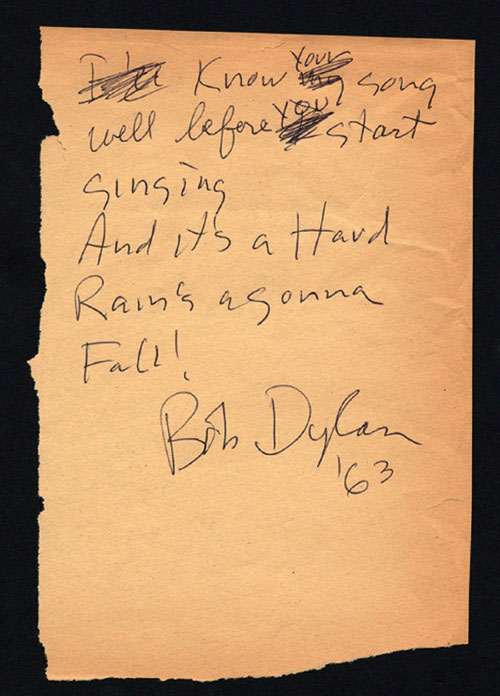 I'll Know your song
well before you start
singing
And it's a Hard
Rain's agonna
Fall!
Bob Dylan
'63